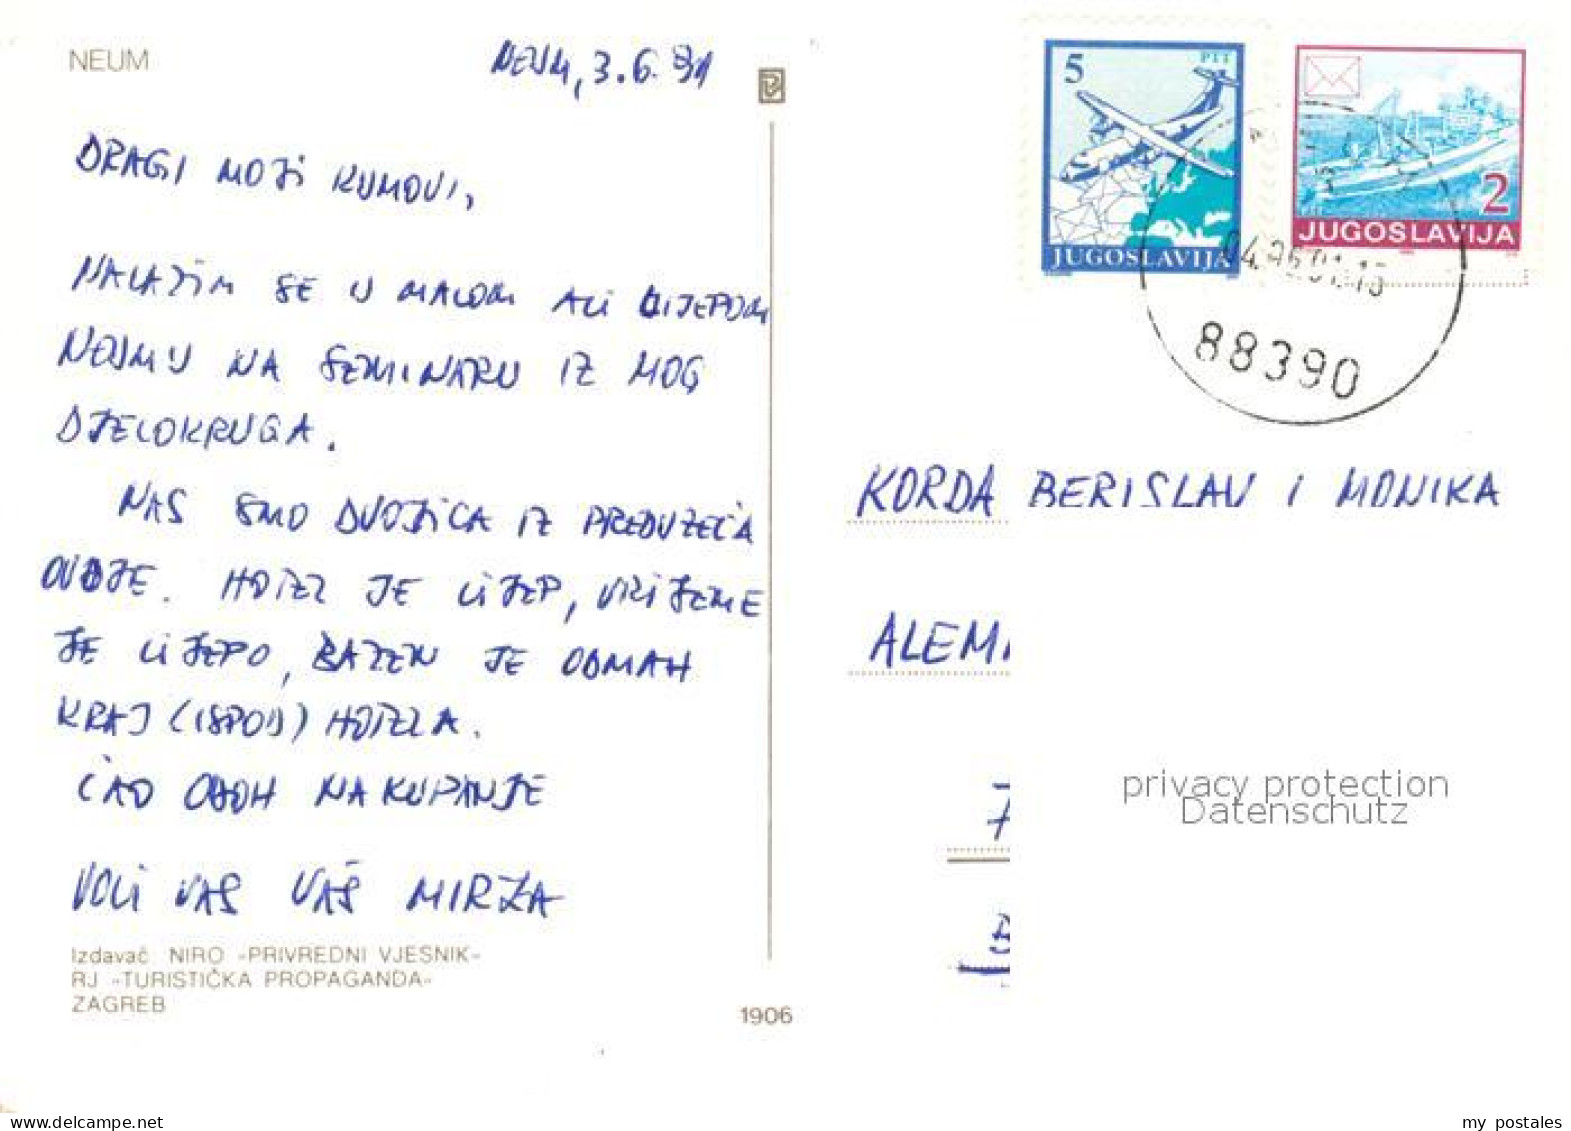 NEUM
NEUM, 3.6.91
DRAGI MOJI KUMOVI,
NALAZIM SE U MALOM ALI LIJEPOM
NEUMU NA SEMINARU IZ MOG
DJELOKRUGA.
NAS SMO DVOJICA IZ PREDUZEĆA
OVDJE. HOTEL JE LIJEP, VRIJEME
JE LIJEPO, BAZEN JE ODMAH
KRAJ (ISPOD) HOTELA.
ĆAO ODOH NA KUPANJE
VOLI VAS VAŠ MIRZA
Izdavač: NIRO »PRIVREDNI VJESNIK«
RJ »TURISTIČKA PROPAGANDA«
ZAGREB
1906
5 PTT
JUGOSLAVIJA
2
JUGOSLAVIJA
04.06.91.13
88390
KORDA BERISLAV I MONIKA
ALEM
7
privacy protection
Datenschutz
my postales